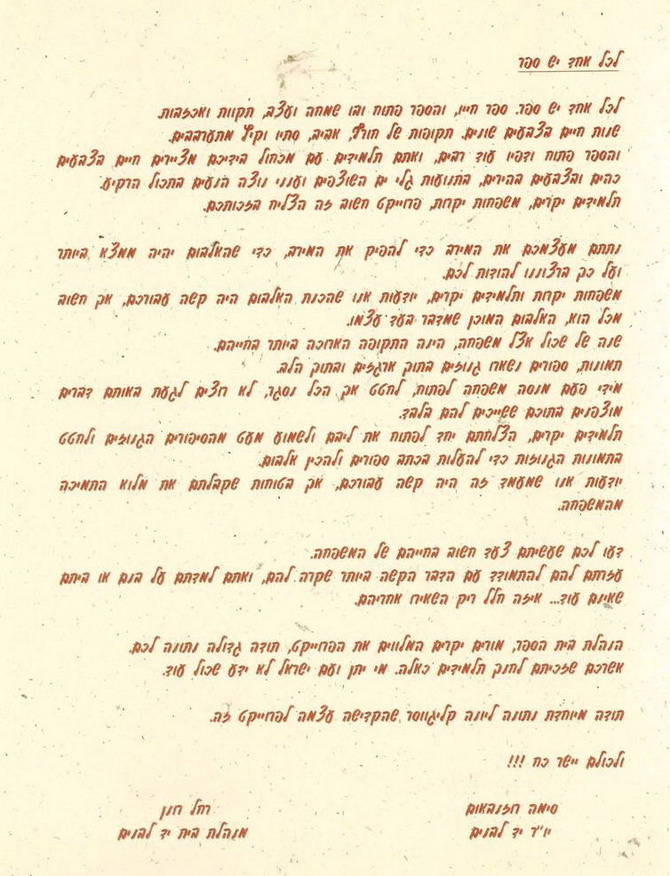 לכל אחד יש ספר
לכל אחד יש ספר. ספר חייו, והספר פתוח ובו שמחה ועצב, תקוות ואכזבות.
שנות חיים בצבעים שונים. תקופות של חורף, אביב, סתיו וקיץ מתערבבים.
והספר פתוח ודפיו עוד רבים, ואתם תלמידים עם מכחול בידיכם מציירים חיים בצבעים
כהים ובצבעים בהירים, בתנועות גלי ים השוצפים וענני נוצה הנעים בתכול הרקיע.
תלמידים יקרים, משפחות יקרות, פרוייקט חשוב זה הצליח בזכותכם.
נתתם מעצמכם את המירב כדי להפיק את המירב, כדי שהאלבום יהיה ממצא ביותר
ועל כך ברצוננו להודות לכם.
משפחות יקרות ותלמידים יקרים, יודעות אנו שהכנת האלבום היה קשה עבורכם, אך חשוב
מכל הוא, האלבום המוכן שמדבר בעד עצמו.
שנה של שכול אצל משפחה, הינה התקופה הארוכה ביותר בחייהם.
תמונות, ספורים נשארו גנוזים בתוך ארגזים ובתוך הלב.
מידי פעם מנסה משפחה לפתוח, לחטט אך הכל נסגר, לא רוצים לגעת באותם דברים
מוצפנים בתוכם ששייכים להם בלבד.
תלמידים יקרים, הצלחתם יחד לפתוח את ליבם ולשמוע מעט מהסיפורים הגנוזים ולחטט
בתמונות הגנוזות כדי להעלות בכתב ספורים ולהכין אלבום.
יודעות אנו שמעמד זה היה קשה עבורכם, אך בטוחות שקבלתם את מלוא התמיכה
מהמשפחה.
דעו לכם שעשיתם צעד חשוב בחייהם של המשפחה.
עזרתם להם להתמודד עם הדבר הקשה ביותר שקרה להם, ואתם למדתם על בנם או ביתם
שאינם עוד... איזה חלל ריק השאירו אחריהם.
הנהלת בית הספר, מורים יקרים המלווים את הפרוייקט, תודה גדולה נתונה לכם.
אשרכם שזכיתם לחנך תלמידים כאלה. מי יתן ועם ישראל לא ידע שכול עוד.
תודה מיוחדת נתונה ליונה קליגווסר שהקדישה עצמה לפרוייקט זה.
ולכולם יישר כח !!!
סימה רוזנבאום רחל רונן
יו"ר יד לבנים מנהלת בית יד לבנים